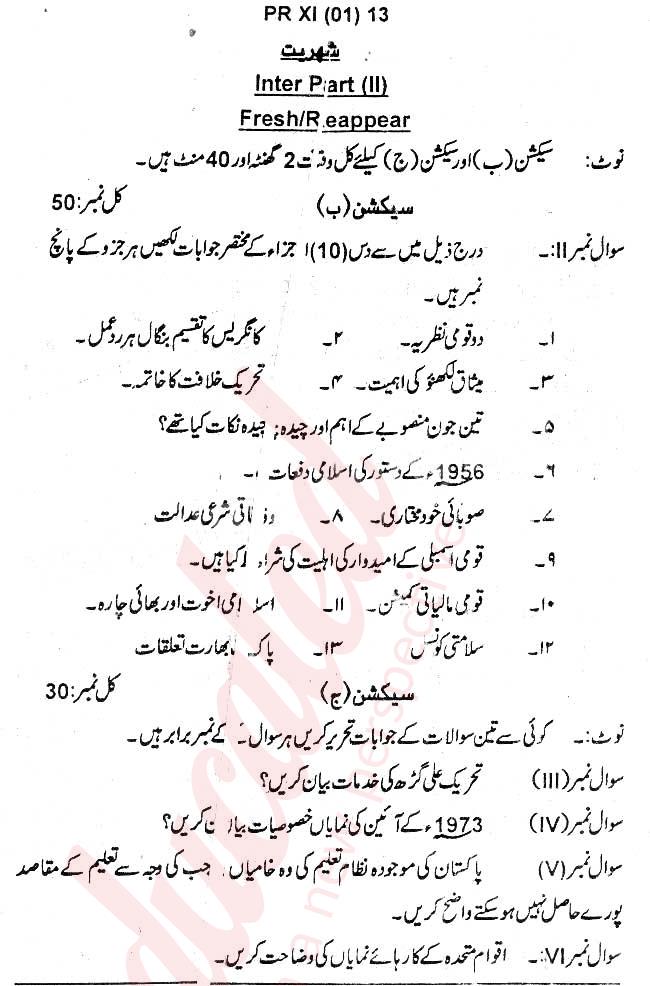 PR XI (01) 13
شہریت
Inter Part (II)
Fresh/Reappear
نوٹ: سیکشن (ب) اور سیکشن (ج) کیلئے کل وقت 2 گھنٹہ اور 40 منٹ ہیں۔
سیکشن (ب) کل نمبر: 50
سوال نمبر II:۔ درج ذیل میں سے دس (10) اجزاء کے مختصر جوابات لکھیں ہر جزو کے پانچ
نمبر ہیں۔
۱۔ دو قومی نظریہ۔ ۲۔ کانگریس کا تقسیم بنگال پر رد عمل۔
۳۔ میثاق لکھنؤ کی اہمیت۔ ۴۔ تحریک خلافت کا خاتمہ۔
۵۔ تین جون منصوبے کے اہم اور چیدہ چیدہ نکات کیا تھے؟
۶۔ 1956ء کے دستور کی اسلامی دفعات
۷۔ صوبائی خود مختاری۔ ۸۔ وفاقی شرعی عدالت
۹۔ قومی اسمبلی کے امیدوار کی اہلیت کی شرائط کیا ہیں۔
۱۰۔ قومی مالیاتی کمیشن۔ ۱۱۔ اسلامی اخوت اور بھائی چارہ۔
۱۲۔ سلامتی کونسل ۱۳۔ پاک بھارت تعلقات
سیکشن (ج) کل نمبر: 30
نوٹ:۔ کوئی سے تین سوالات کے جوابات تحریر کریں ہر سوال کے نمبر برابر ہیں۔
سوال نمبر (III) تحریک علی گڑھ کی خدمات بیان کریں؟
سوال نمبر (IV) 1973ء کے آئین کی نمایاں خصوصیات بیان کریں؟
سوال نمبر (V) پاکستان کی موجودہ نظام تعلیم کی وہ خامیاں جب کی وجہ سے تعلیم کے مقاصد
پورے حاصل نہیں ہو سکتے واضح کریں۔
سوال نمبر VI:۔ اقوام متحدہ کے کارہائے نمایاں کی وضاحت کریں۔